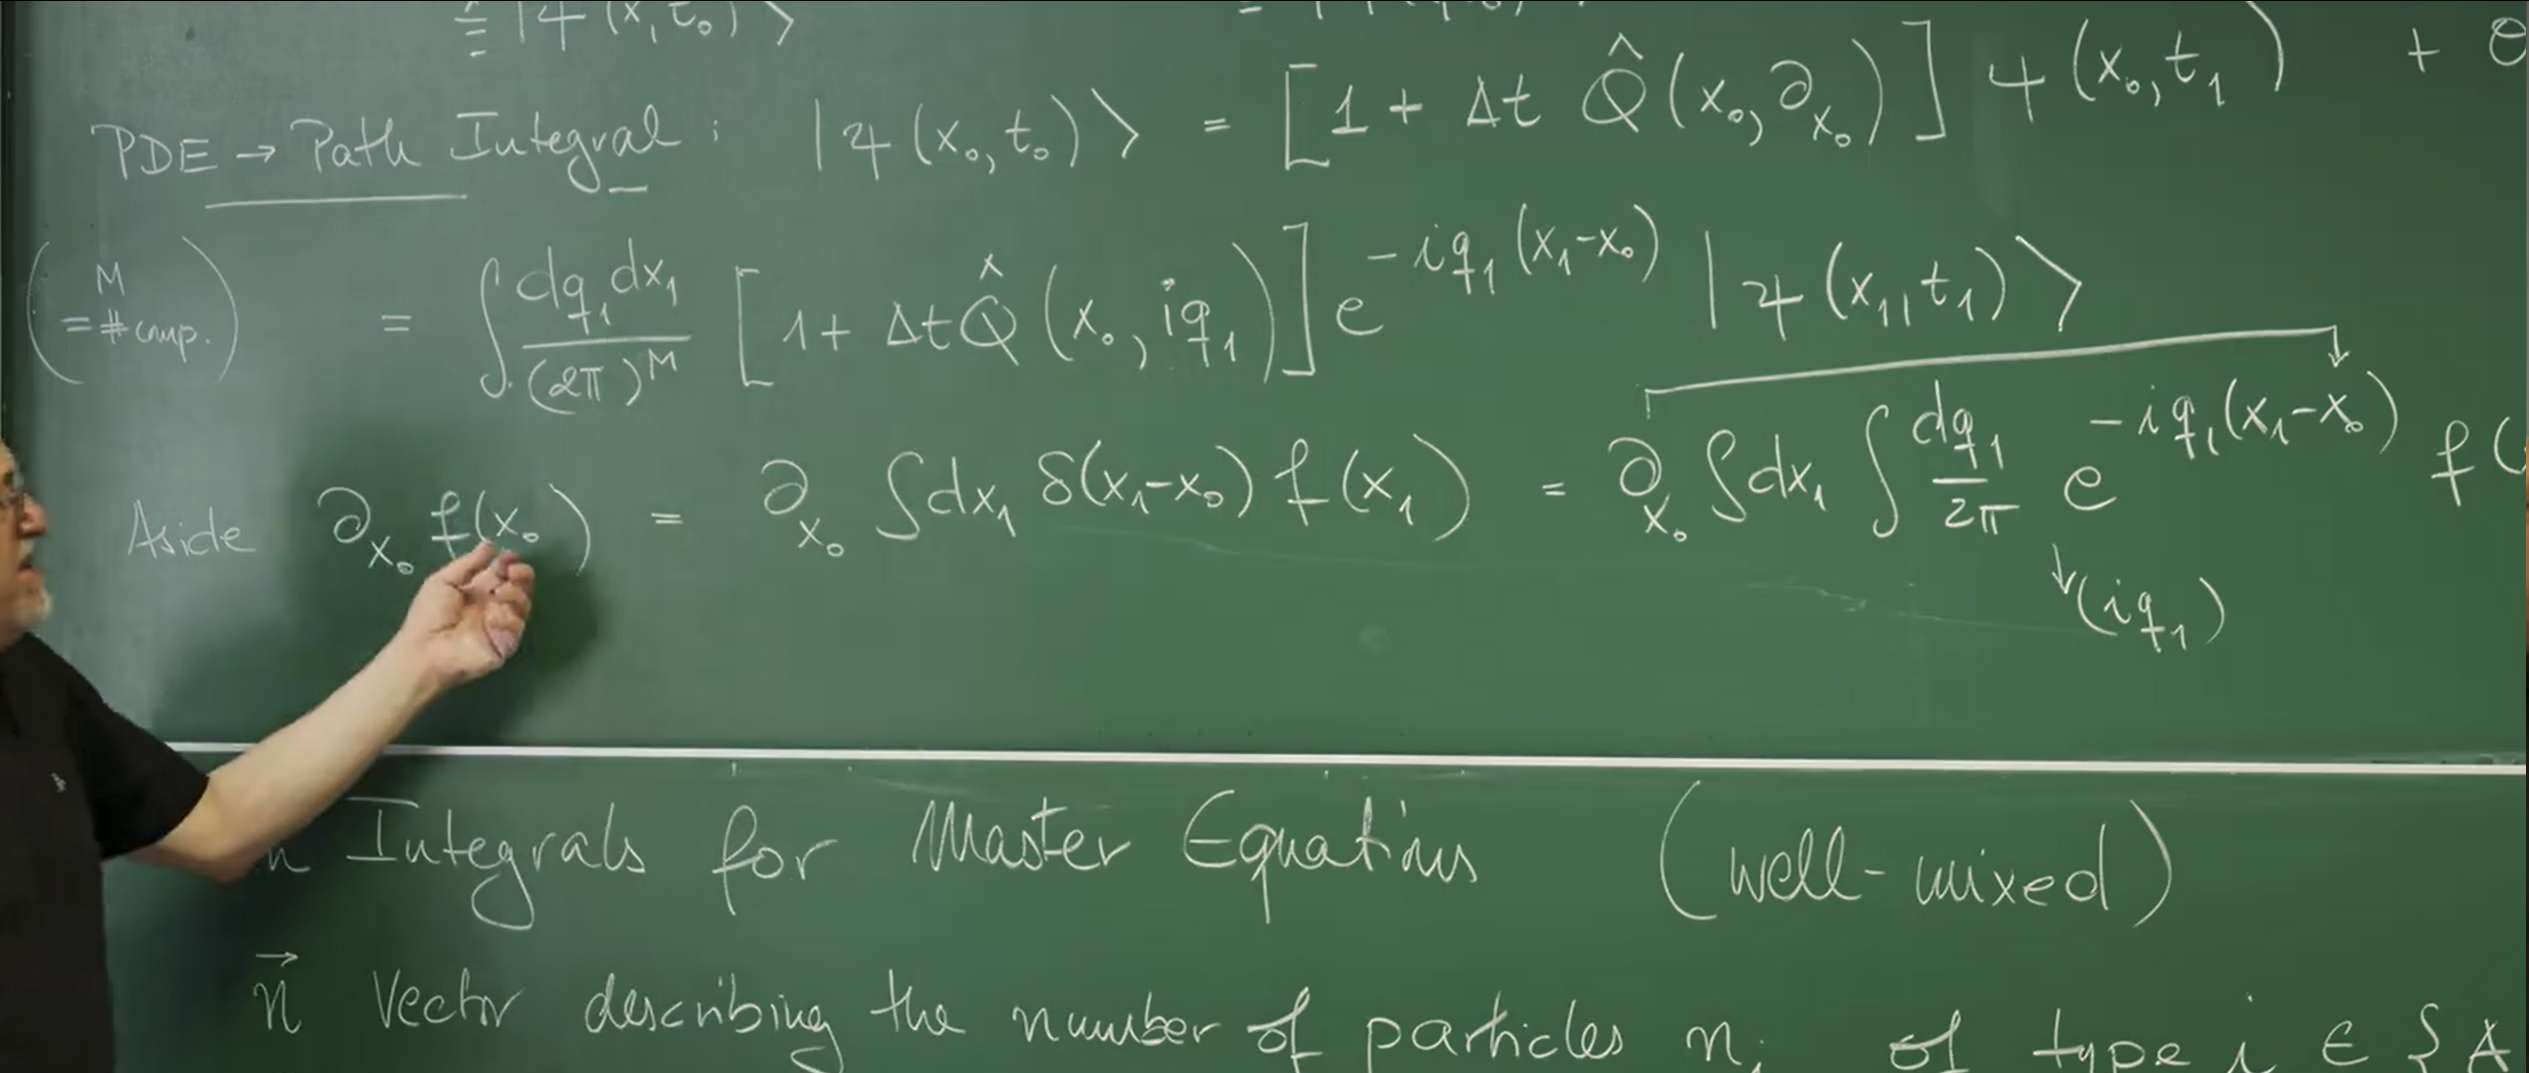 ≙ |ψ(x, t₀)⟩ =
PDE → Path Integral : |ψ(x₀, t₀)⟩ = [1 + Δt Q̂(x₀, ∂ₓ₀)] ψ(x₀, t₁) + O
(M = # comp.) = ∫ dq₁dx₁/(2π)^M [1 + Δt Q̂(x₀, iq₁)] e^{-iq₁(x₁-x₀)} |ψ(x₁, t₁)⟩
Aside ∂ₓ₀ f(x₀) = ∂ₓ₀ ∫dx₁ δ(x₁-x₀) f(x₁) = ∂ₓ₀ ∫dx₁ ∫ dq₁/2π e^{-iq₁(x₁-x₀)} f(
↓(iq₁)
n Integrals for Master Equations (well-mixed)
n⃗ Vector describing the number of particles nᵢ of type i ∈ {A